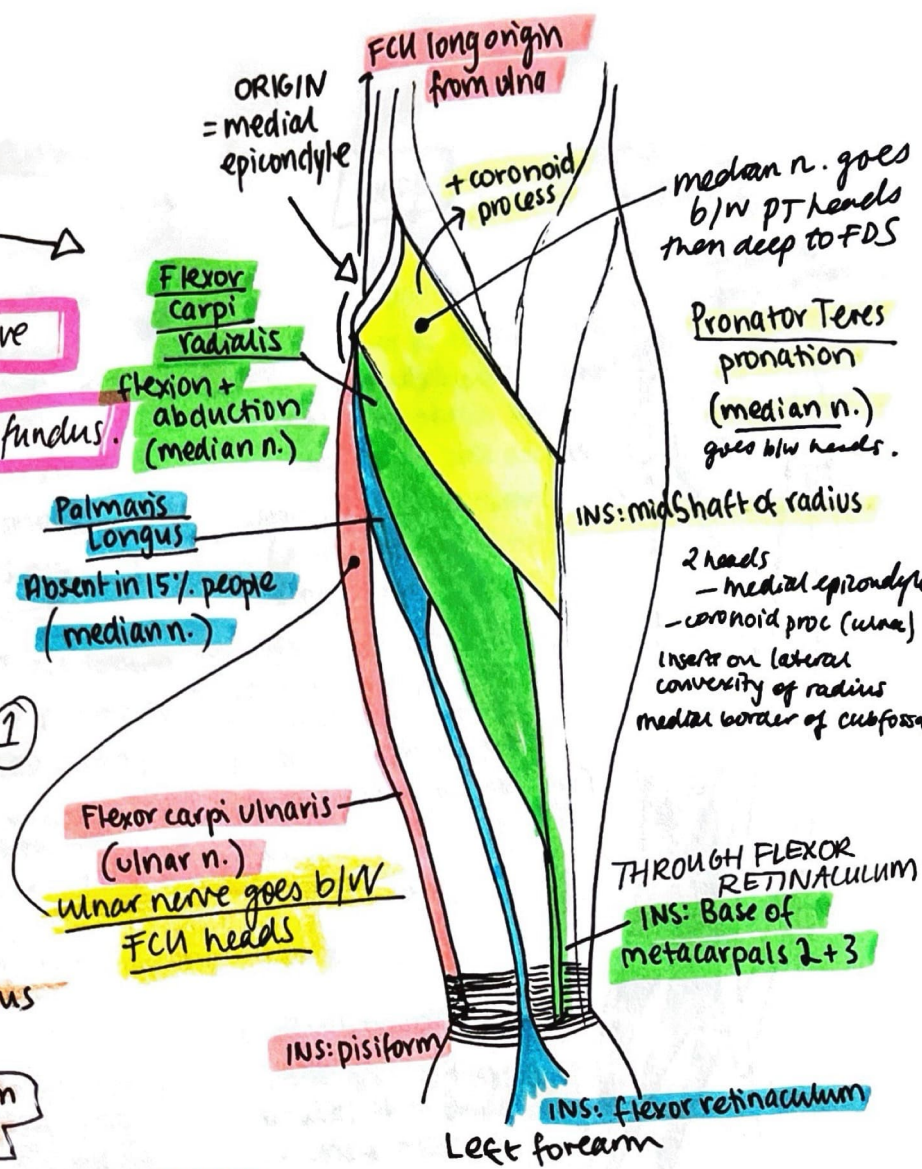 FCU long origin
from ulna
ORIGIN
= medial
epicondyle
+ coronoid
process
median n. goes
b/w PT heads
then deep to FDS
Flexor
carpi
radialis
flexion +
abduction
(median n.)
ve
fundus.
Pronator Teres
pronation
(median n.)
goes b/w heads.
Palmaris
Longus
Absent in 15% people
(median n.)
INS: midshaft of radius
2 heads
- medial epicondyle
- coronoid proc (ulna)
Inserts on lateral
convexity of radius
medial border of cubfossa
1
Flexor carpi ulnaris
(ulnar n.)
ulnar nerve goes b/w
FCU heads
THROUGH FLEXOR
RETINACULUM
INS: Base of
metacarpals 2+3
us
INS: pisiform
n
INS: flexor retinaculum
Left forearm